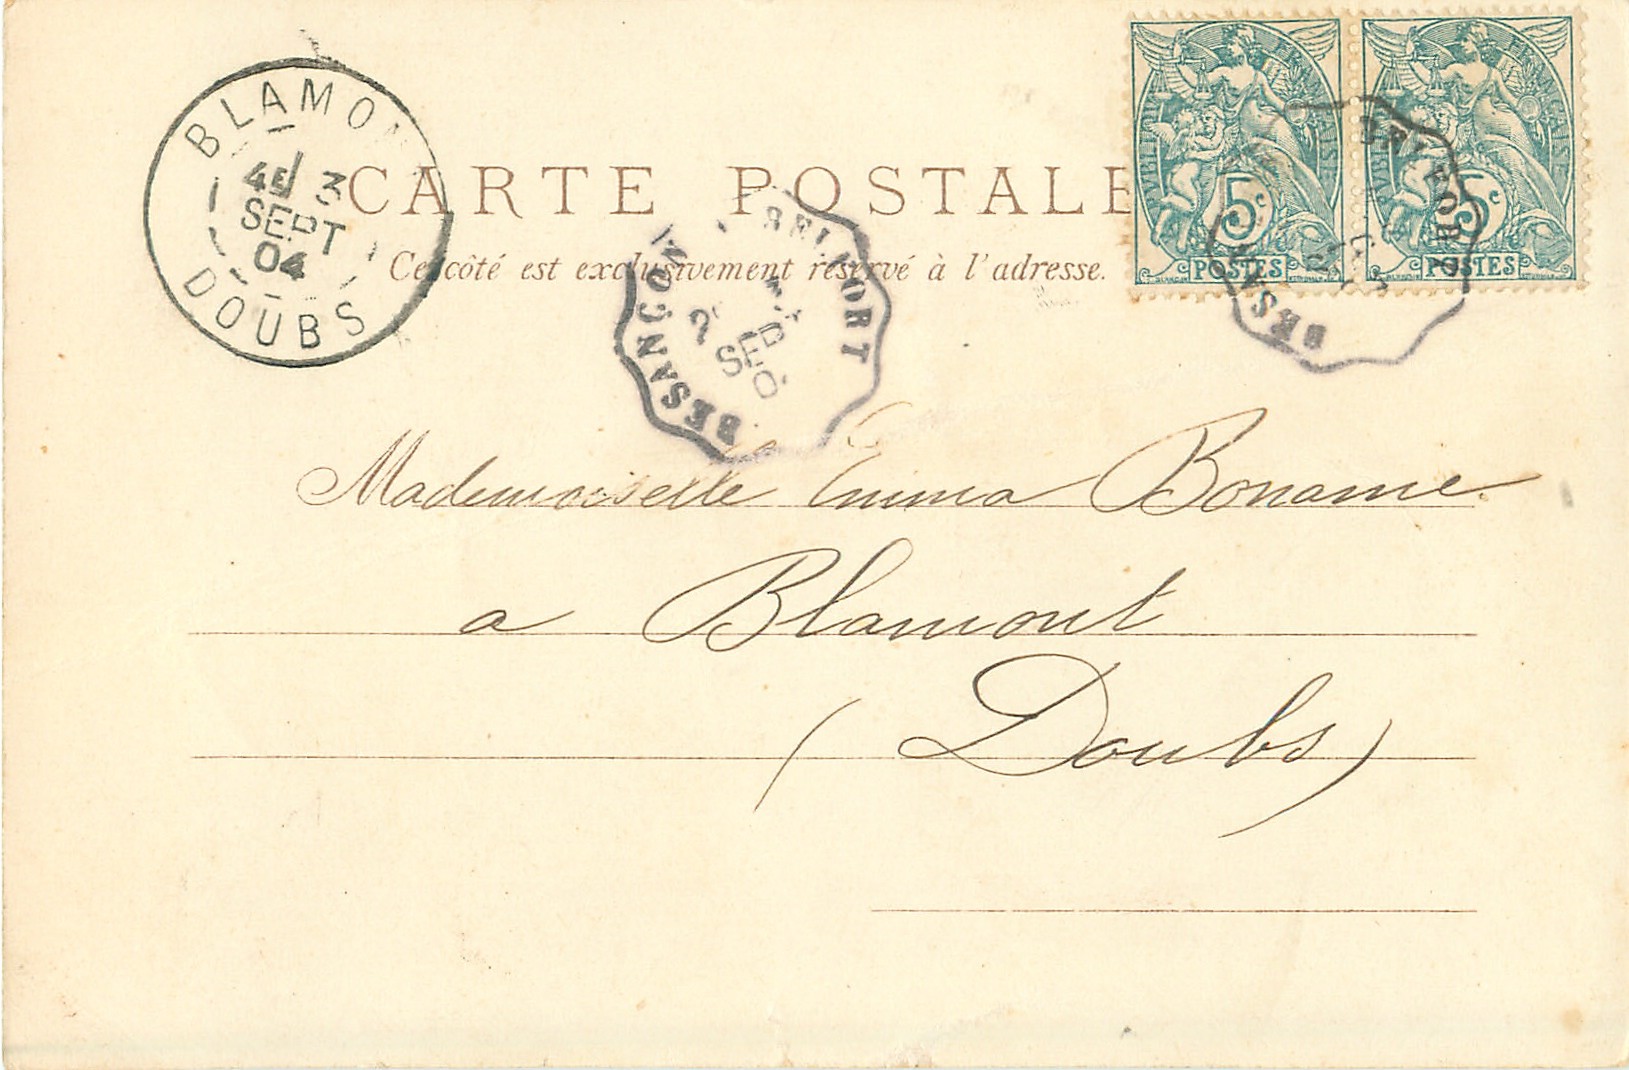 BLAMON
4E 3
SEPT
04
DOUBS
CARTE POSTALE
Ce côté est exclusivement réservé à l'adresse.
BESANÇON BELFORT
SEPT
RÉPUBLIQUE FRANÇAISE
5c
POSTES
RÉPUBLIQUE FRANÇAISE
5c
POSTES
BESAN BELFORT
Mademoiselle Emma Boname.
a Blamont
(Doubs)